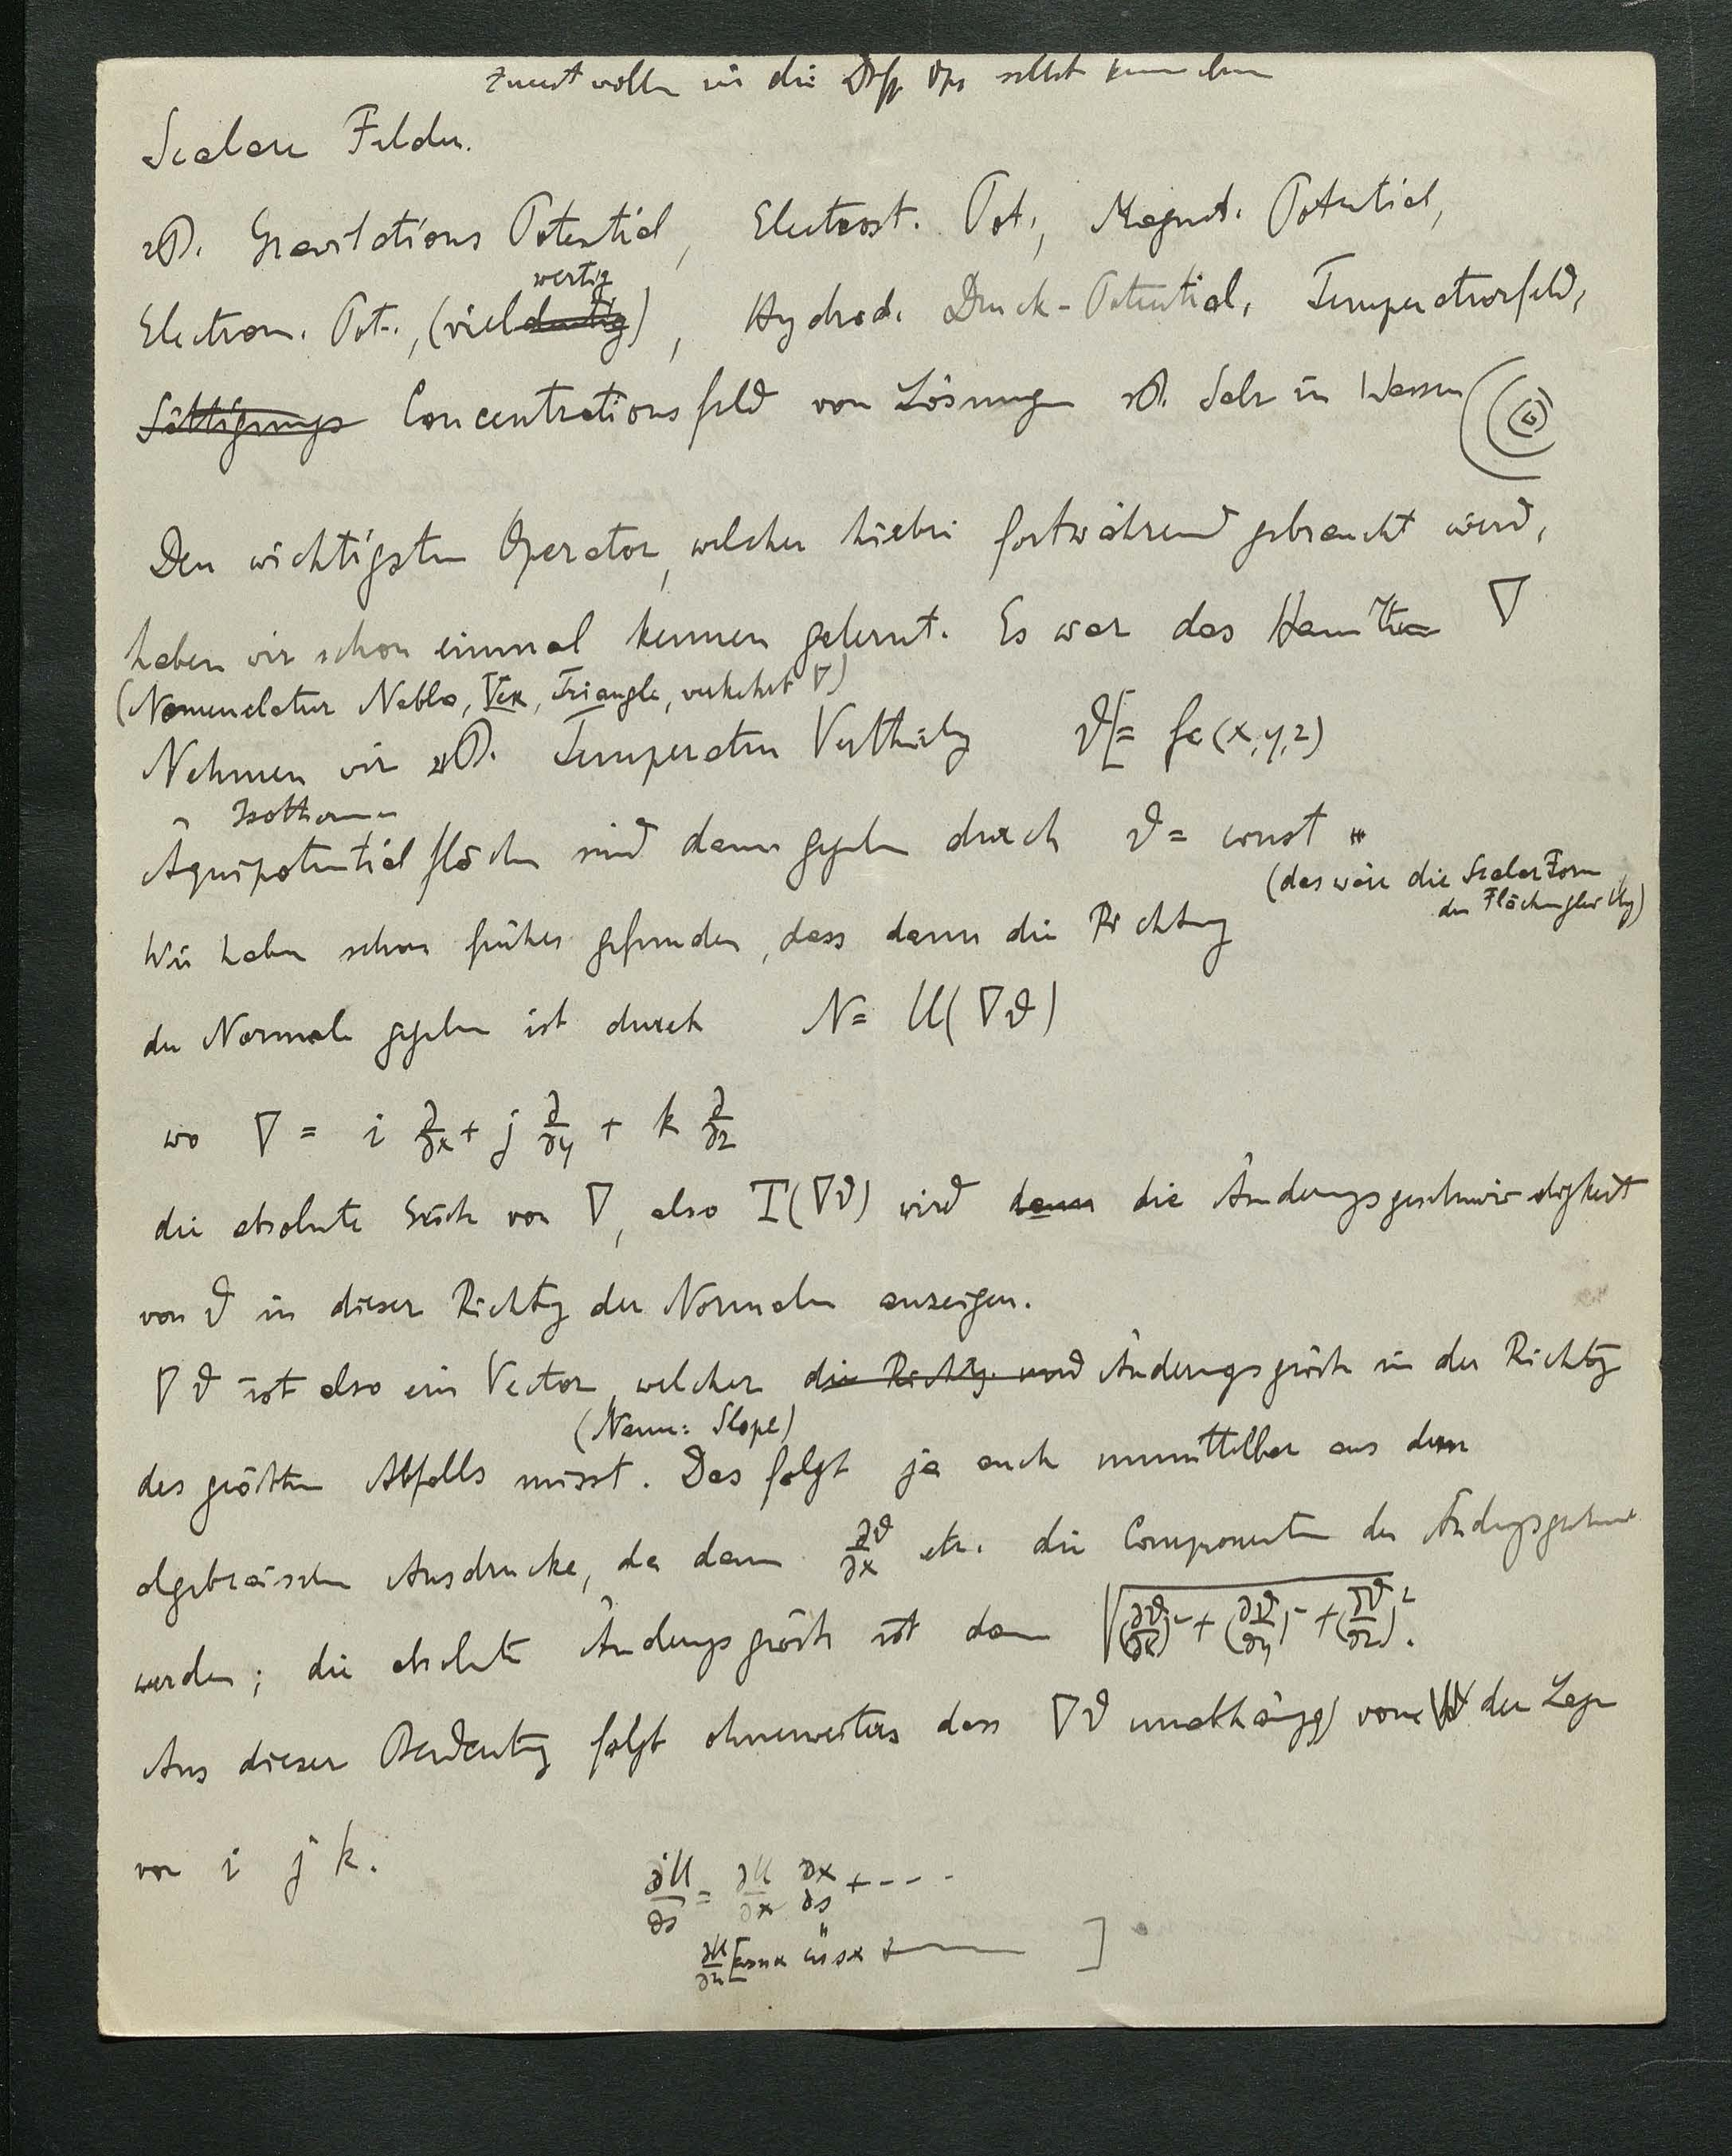 Zuerst wollen wir die Diff Op. selbst
Scalare Felder.
zB. Gravitations Potential, Electrost. Pot., Magnet. Potential,
wertig
Electrom. Pot., (vieldeutig), Hydrod. Druck-Potential, Temperaturfeld,
Sättigungs Concentrationsfeld von Lösungen zB. Salz in Wasser
Den wichtigsten Operator, welcher hiebei fortwährend gebraucht wird,
haben wir schon einmal kennen gelernt. Es war das Hamilton ∇
(Nomenclatur Nabla, Vex, Triangle, verkehrt ∇)
Nehmen wir zB. Temperatur Vertheilung ϑ = fc (x, y, z)
Isothermen
Äquipotentialflächen sind dann gegeben durch ϑ = const
(das wäre die Scalar Form
der Flächengleichg)
Wir haben schon früher gefunden, dass dann die Richtung
der Normale gegeben ist durch N = U(∇ϑ)
wo ∇ = i ∂/∂x + j ∂/∂y + k ∂/∂z
die absolute Größe von ∇, also T(∇ϑ) wird dann die Änderungsgeschwindigkeit
von ϑ in dieser Richtg der Normalen anzeigen.
∇ϑ ist also ein Vector, welcher die Richtg. und Änderungsgröße in der Richtg
(Name: Slope)
des größten Abfalls misst. Das folgt ja auch unmittelbar aus dem
algebraischen Ausdrucke, da dann ∂ϑ/∂x etc. die Componenten der
werden; die absolute Änderungsgröße ist dann √(∂ϑ/∂x)² + (∂ϑ/∂y)² + (∂ϑ/∂z)².
Aus dieser Bedeutg folgt ohneweiters dass ∇ϑ unabhängig von der Lage
von i j k.
∂U/∂s = ∂U/∂x ∂x/∂s + - - - -
∂U/∂n [cos nx cos sx + ——— ]